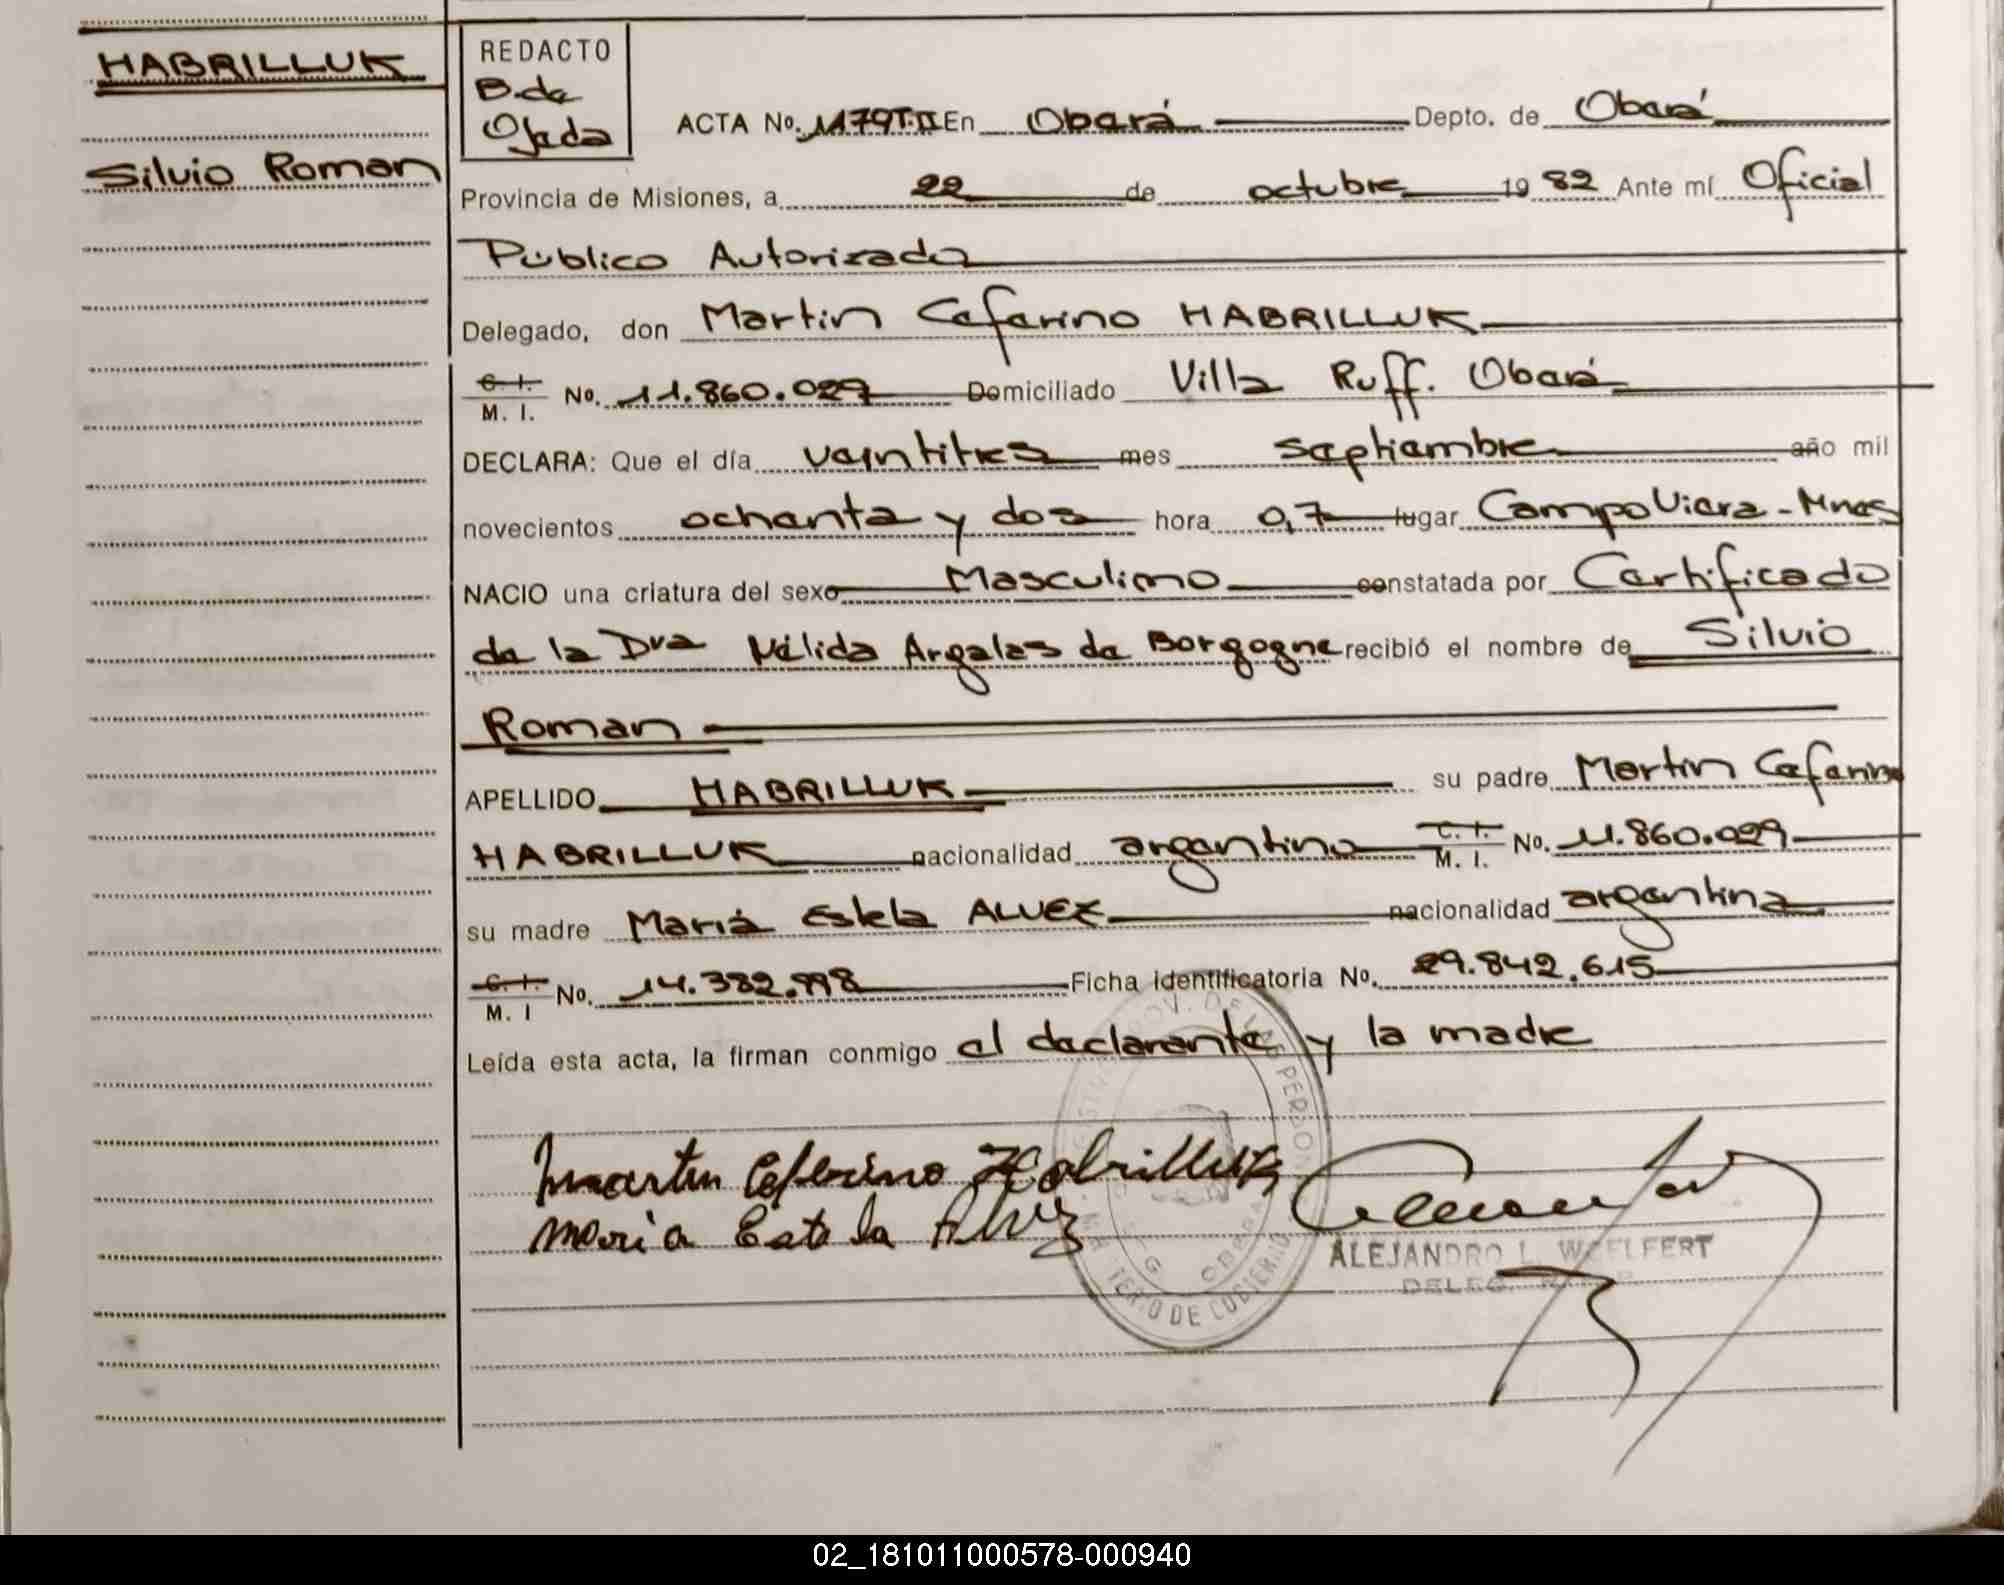 HABRILLUK
Silvio Roman
REDACTO
B. de
Ojeda
ACTA No. 1179T.II En Oberá Depto. de Oberá
Provincia de Misiones, a 22 de octubre 19 82 Ante mí Oficial
Público Autorizado
Delegado, don Martin Ceferino HABRILLUK
C. I.
M. I. No. 11.860.029 Domiciliado Villa Ruff. Oberá
DECLARA: Que el día veintitres mes septiembre año mil
novecientos ochenta y dos hora 0,7 lugar Campo Viera - Mnes
NACIO una criatura del sexo Masculino constatada por Certificado
de la Dra Nélida Argales de Borgogne recibió el nombre de Silvio
Roman
APELLIDO HABRILLUK su padre Martin Ceferino
HABRILLUK nacionalidad argentino C. I. M. I. No. 11.860.029
su madre María Estela ALVEZ nacionalidad argentina
C. I.
M. I No. 14.382.998 Ficha Identificatoria No. 29.842.615
Leída esta acta, la firman conmigo el declarante y la madre
Martin Ceferino Habrilluk
Maria Estela Alvez
ALEJANDRO L. WELFERT
DELEG.
PROV. DE LAS PERSONAS
OBERA
MINISTERIO DE GOBIERNO
02_181011000578-000940